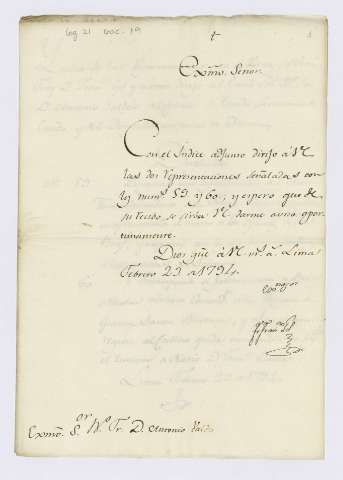 Leg. 21 Doc. 19
Exmo. Señor.
Con el Indice adjunto dirijo á VE
las dos representaciones señaladas con
los nums. 59 y 60; y espero que de
su recibo se sirva VE darme aviso opor-
tunamente.
Dios gue á VE ms. as. Lima
Febrero 23 de 1794.
Exmo. Sor. Bo. Fr. D. Antonio Valdés